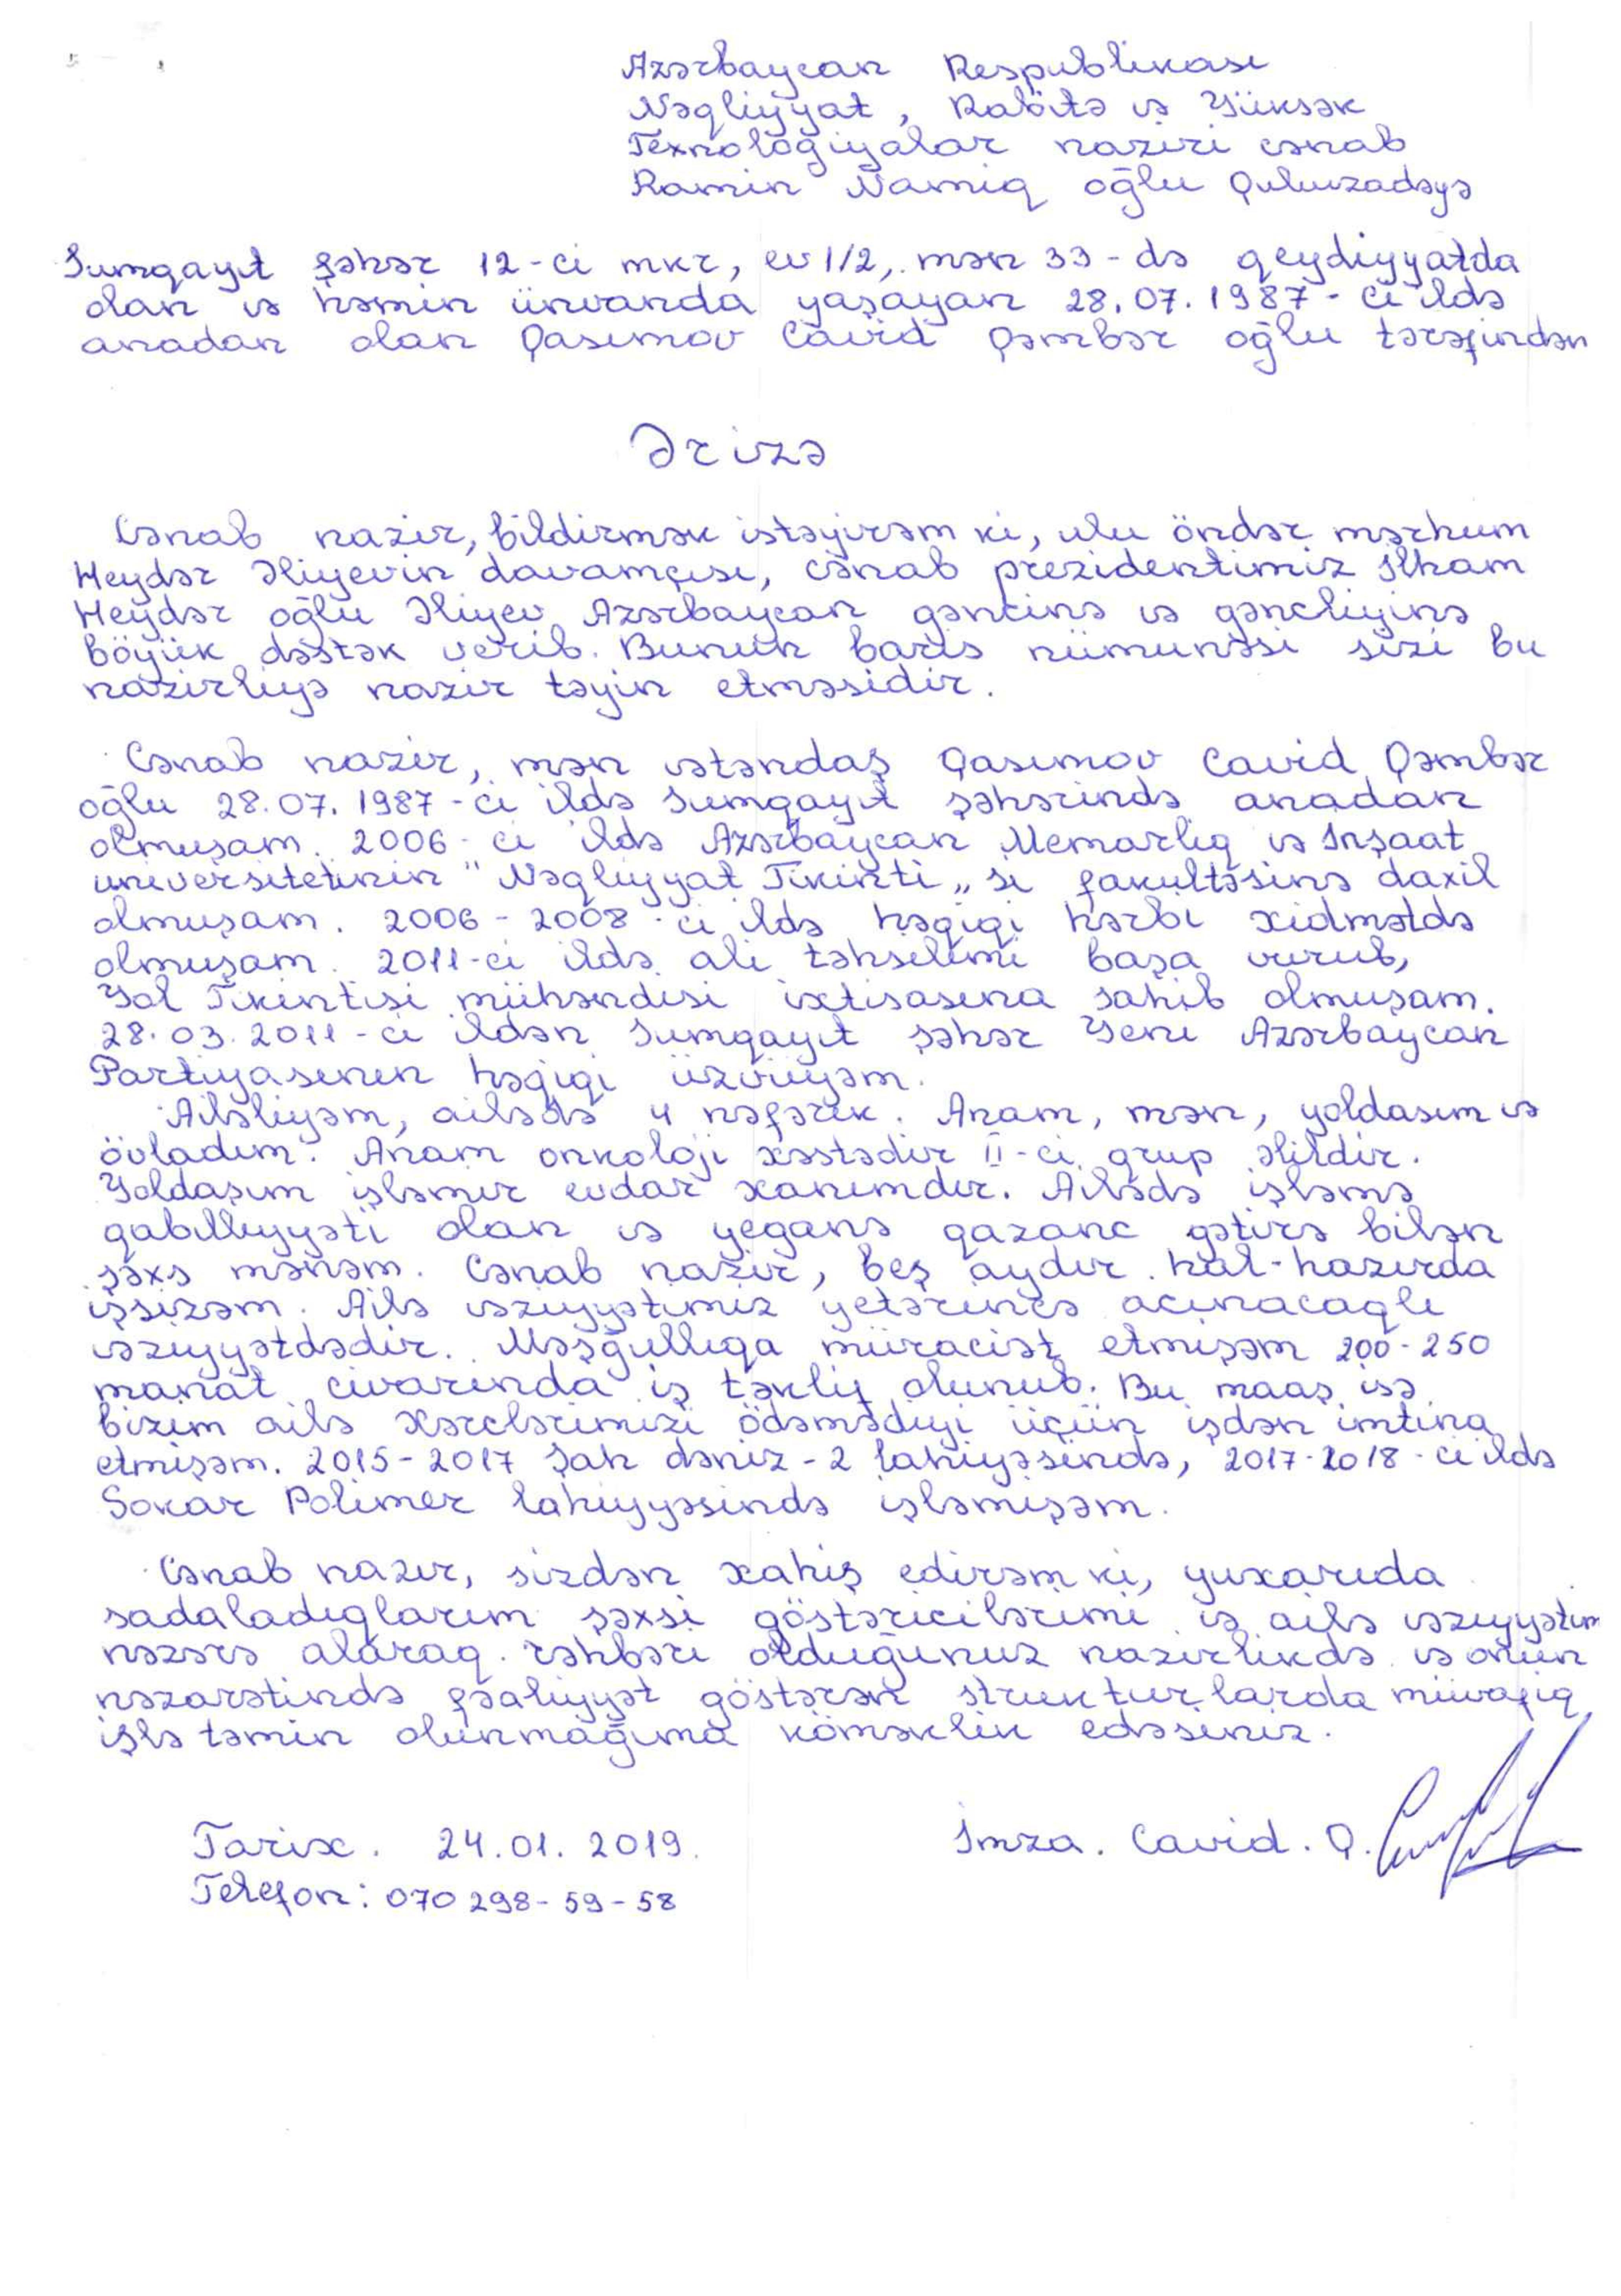 Azərbaycan Respublikası
Nəqliyyat, Rabitə və Yüksək
Texnologiyalar naziri cənab
Ramin Namiq oğlu Quluzadəyə
Sumqayıt şəhər 12-ci mkr, ev 1/2, mən 33-də qeydiyyatda
olan və həmin ünvanda yaşayan 28.07.1987-ci ildə
anadan olan Qasımov Cavid Qəmbər oğlu tərəfindən
Ərizə
Cənab nazir, bildirmək istəyirəm ki, ulu öndər mərhum
Heydər Əliyevin davamçısı, cənab prezidentimiz İlham
Heydər oğlu Əliyev Azərbaycan gəncinə və gəncliyinə
böyük dəstək verib. Bunun bariz nümunəsi sizi bu
nazirliyə nazir təyin etməsidir.
Cənab nazir, mən vətəndaş Qasımov Cavid Qəmbər
oğlu 28.07.1987-ci ildə Sumqayıt şəhərində anadan
olmuşam. 2006-ci ildə Azərbaycan Memarlıq və İnşaat
universitetinin "Nəqliyyat Tikinti„si fakultəsinə daxil
olmuşam. 2006-2008-ci ildə həqiqi hərbi xidmətdə
olmuşam. 2011-ci ildə ali təhsilimi başa vurub,
Yol Tikintisi mühəndisi ixtisasına sahib olmuşam.
28.03.2011-ci ildən Sumqayıt şəhər Yeni Azərbaycan
Partiyasının həqiqi üzvüyəm.
Ailəliyəm, ailədə 4 nəfərik. Anam, mən, yoldasım və
övladım. Anam onkoloji xəstədir II-ci grup əlildir.
Yoldaşım işləmir evdar xanımdır. Ailədə işləmə
qabılliyyəti olan və yeganə qazanc gətirə bilən
şəxs mənəm. Cənab nazir, beş aydır hal-hazırda
işsizəm. Ailə vəziyyətimiz yetərincə acınacaqlı
vəziyyətdədir. Məşğulluqa müraciət etmişəm 200-250
manat civarında iş təklif olunub. Bu maaş isə
bizim ailə xərclərimizi ödəmədiyi üçün işdən imtina
etmişəm. 2015-2017 Şah dəniz-2 lahiyəsində, 2017-2018-ci ildə
Sokar Polimer lahiyyəsində işləmişəm.
Cənab nazir, sizdən xahiş edirəm ki, yuxarıda
sadaladıqlarım şəxsi göstəricilərimi və ailə vəziyyətim
nəzərə alaraq. rəhbəri olduğunuz nazirlikdə və onun
nəzarətində fəaliyyət göstərən strukturlarda müvafiq
işlə təmin olunmağıma köməklik edəsiniz.
Tarix. 24.01.2019.
İmza. Cavid. Q.
Telefon: 070 298-59-58